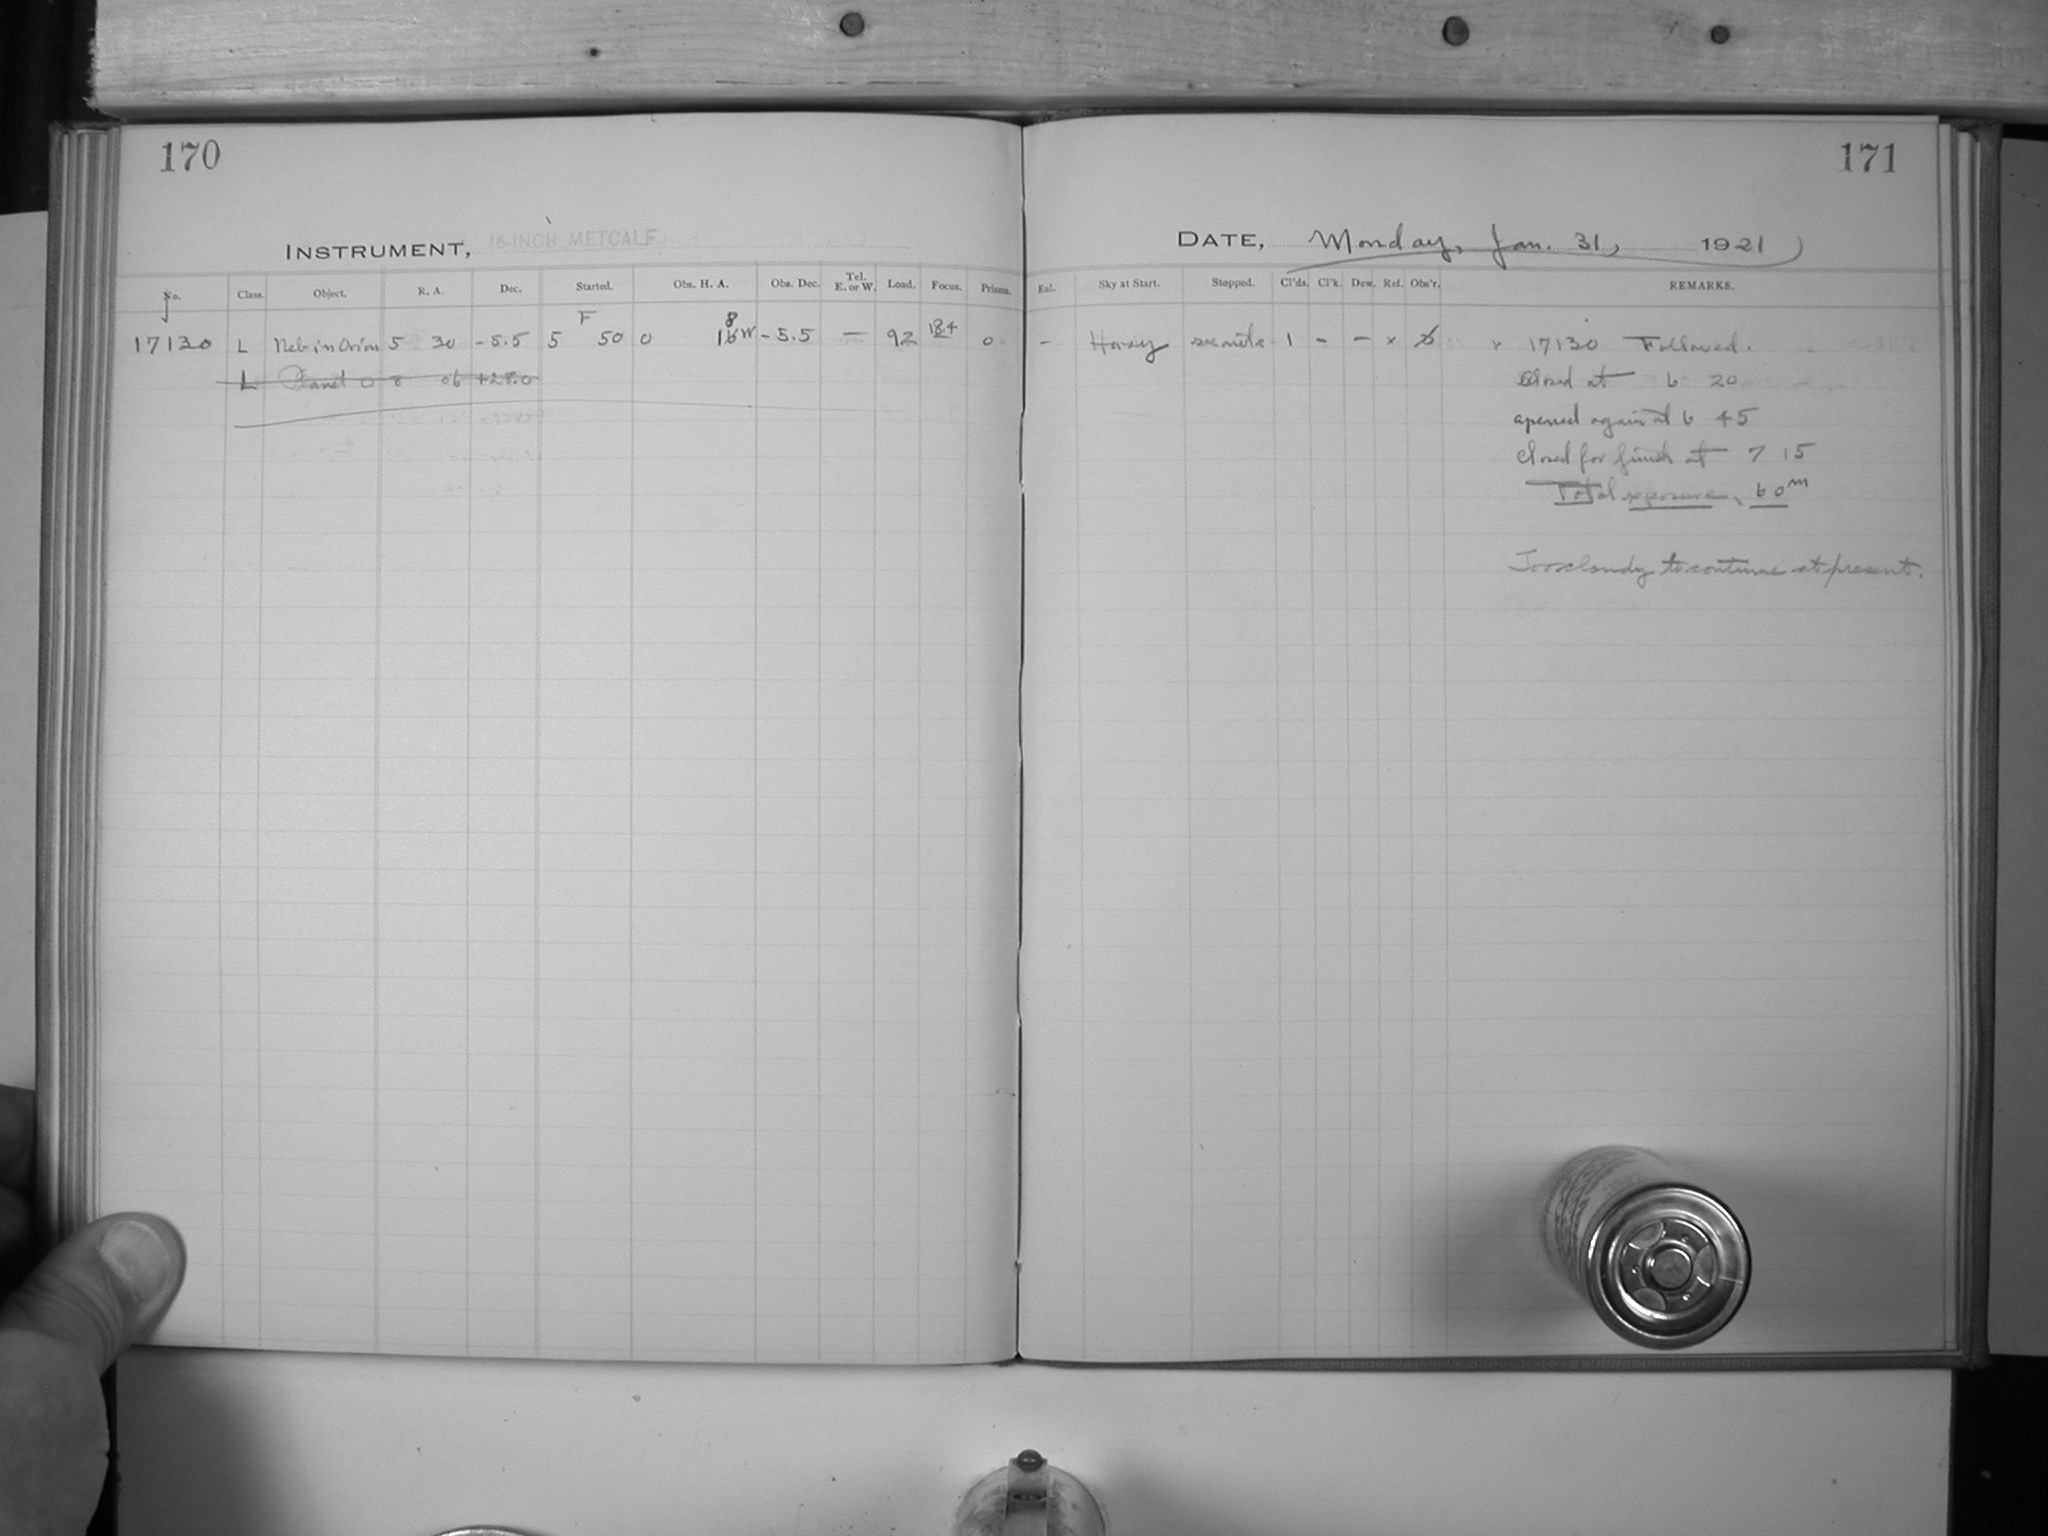 170
INSTRUMENT, 16-INCH METCALF
No. Class. Object. R. A. Dec. Started. Obs. H. A. Obs. Dec. Tel. E. or W. Load. Focus. Prisms.
17130 L Neb in Orion 5 30 -5.5 5 F 50 0 18 W -5.5 — 92 18.4 0
L Planet O 8 06 +28.0
171
DATE, Monday, Jan. 31, 1921
Enl. Sky at Start. Stopped. Cl'ds. Cl'k. Dew. Ref. Obs'r. REMARKS.
- Hazy 1 - - x x 17130 Followed.
Closed at 6 20
opened again at 6 45
closed for finish at 7 15
Total exposure, 60m
Too cloudy to continue at present.